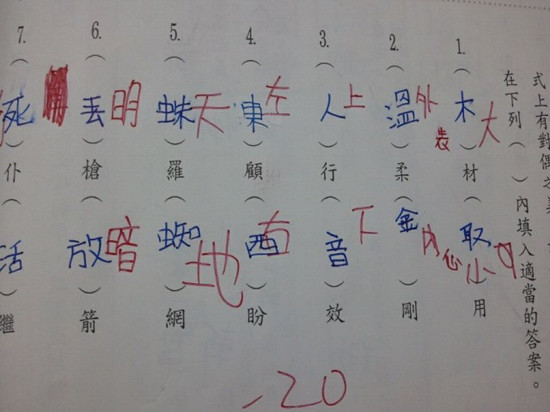 式上有對偶之
在下列（ ）內填入適當的答案。
1.（木）材（取）用
大小
2.（溫）柔（金）剛
外表內心
3.（人）行（音）效
上下
4.（東）顧（西）盼
左右
5.（蛛）羅（蜘）網
天地
6.（丟）槍（放）箭
明暗
7.（死）仆（活）繼
-20